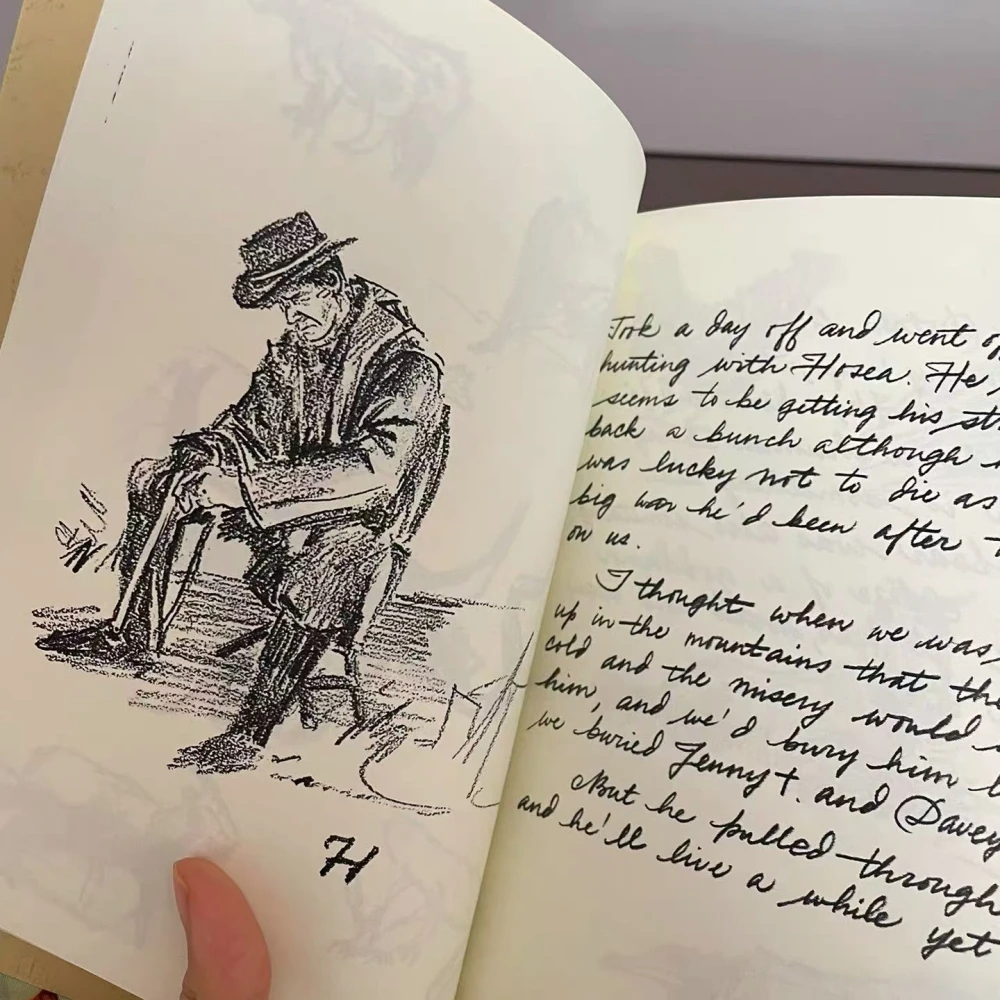 H
Took a day off and went
hunting with Hosea. He
seems to be getting his
back a bunch although
was lucky not to die as
big war he'd been after
on us.
I thought when we was
up in the mountains that the
cold and the misery would
him, and we'd bury him
we buried Jenny +. and Davey
But he pulled through
and he'll live a while yet